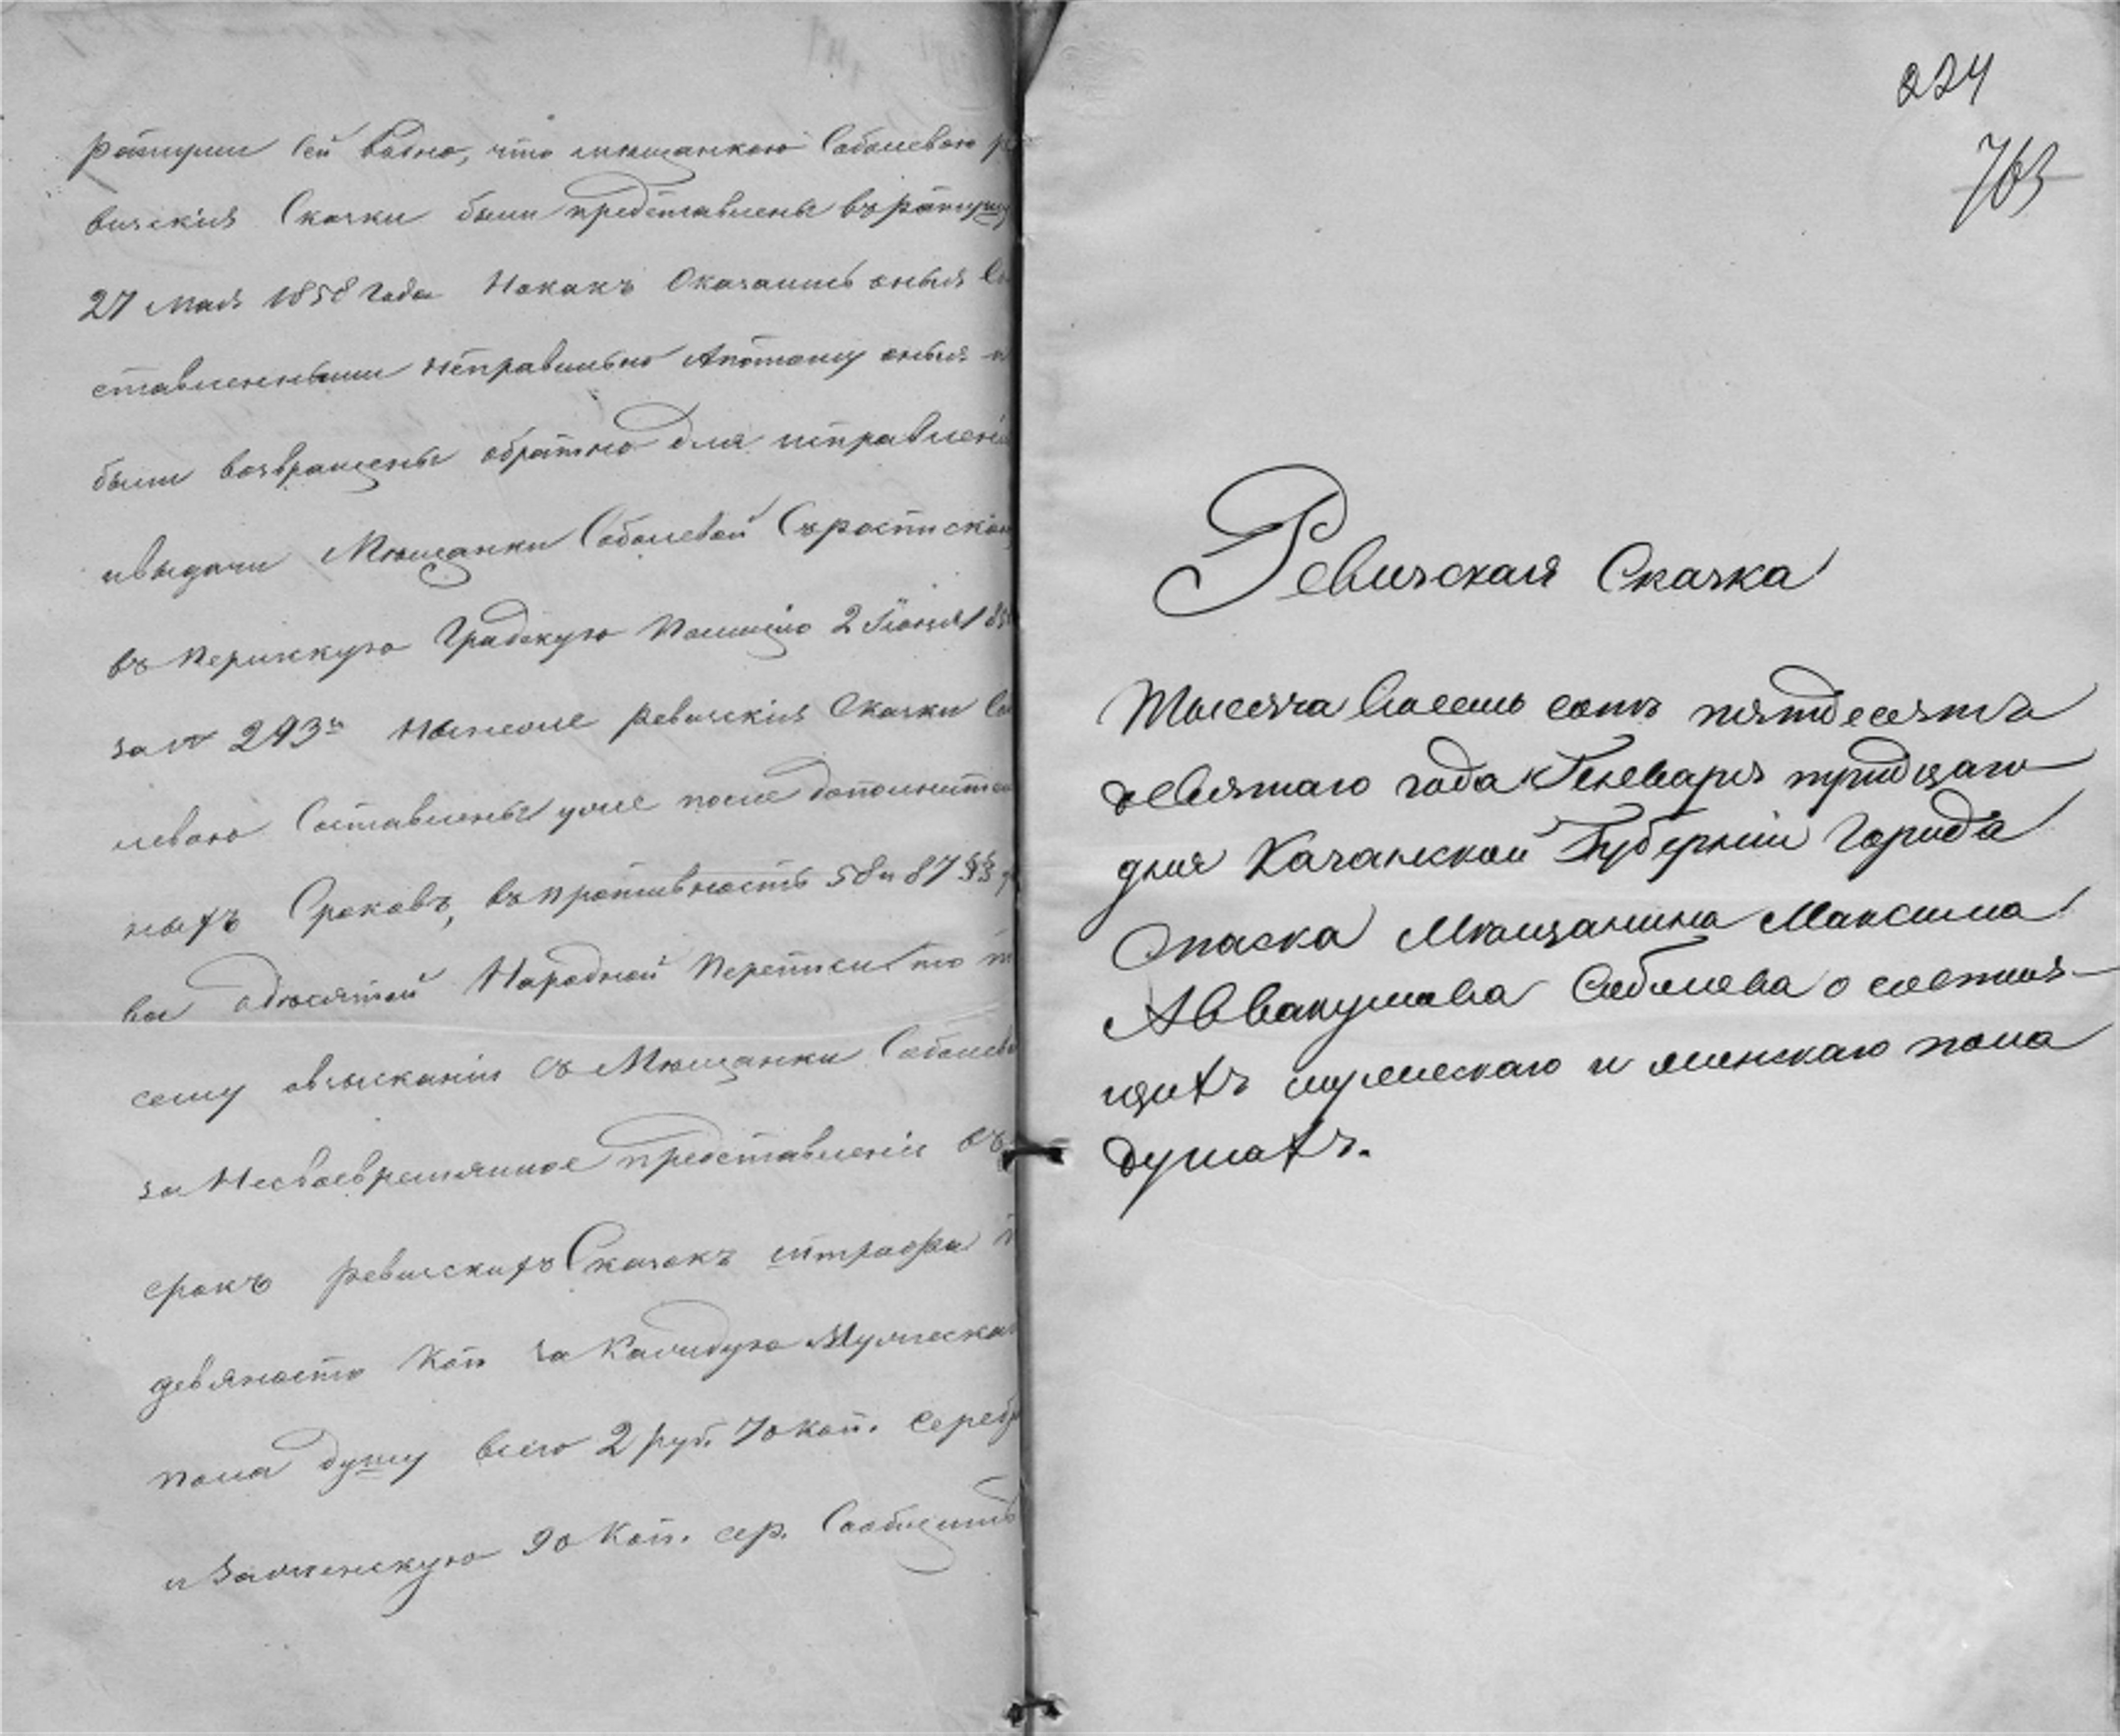 ратуши сей видно, что мѣщанкою Соболевою ре
визскія Скаски были представлены въ ратушу
27 Мая 1858 года Нокакъ Оказались оныя Со
ставленными неправильно Апотому оныя
были возвращены обратно для исправленія
ивыдачи Мѣщанки Соболевой Съроспискою
въ Пермскую Градскую Полицію 2 Іюня 185
за № 293м Ныне же ревизскія Скаски Собо
левою Составлены уже после дополнитель
ныхъ Сроковъ, въ противность 58 и 87 §§ у
ва о десятой Народной Переписи то по
сему овзысканіи съ Мѣщанки Соболевой
за Несвоевремянное представленіе въ
срокъ ревизскихъ Сказокъ штрафа по
девяносто Коп за Каждую Мужеска
пола душу всего 2 руб. 70 коп. Серебр
и Заженскую 90 Коп. сер. Сообщить
224
763
Ревизская Сказка
Тысяча восемь сотъ пятдесятъ
девятаго года Генваря тридцаго
дня Казанской Губерніи Города
Спаска Мѣщанина Максима
Аввакумова Соболева о состоя-
щихъ мужескаго и женскаго пола
душахъ.